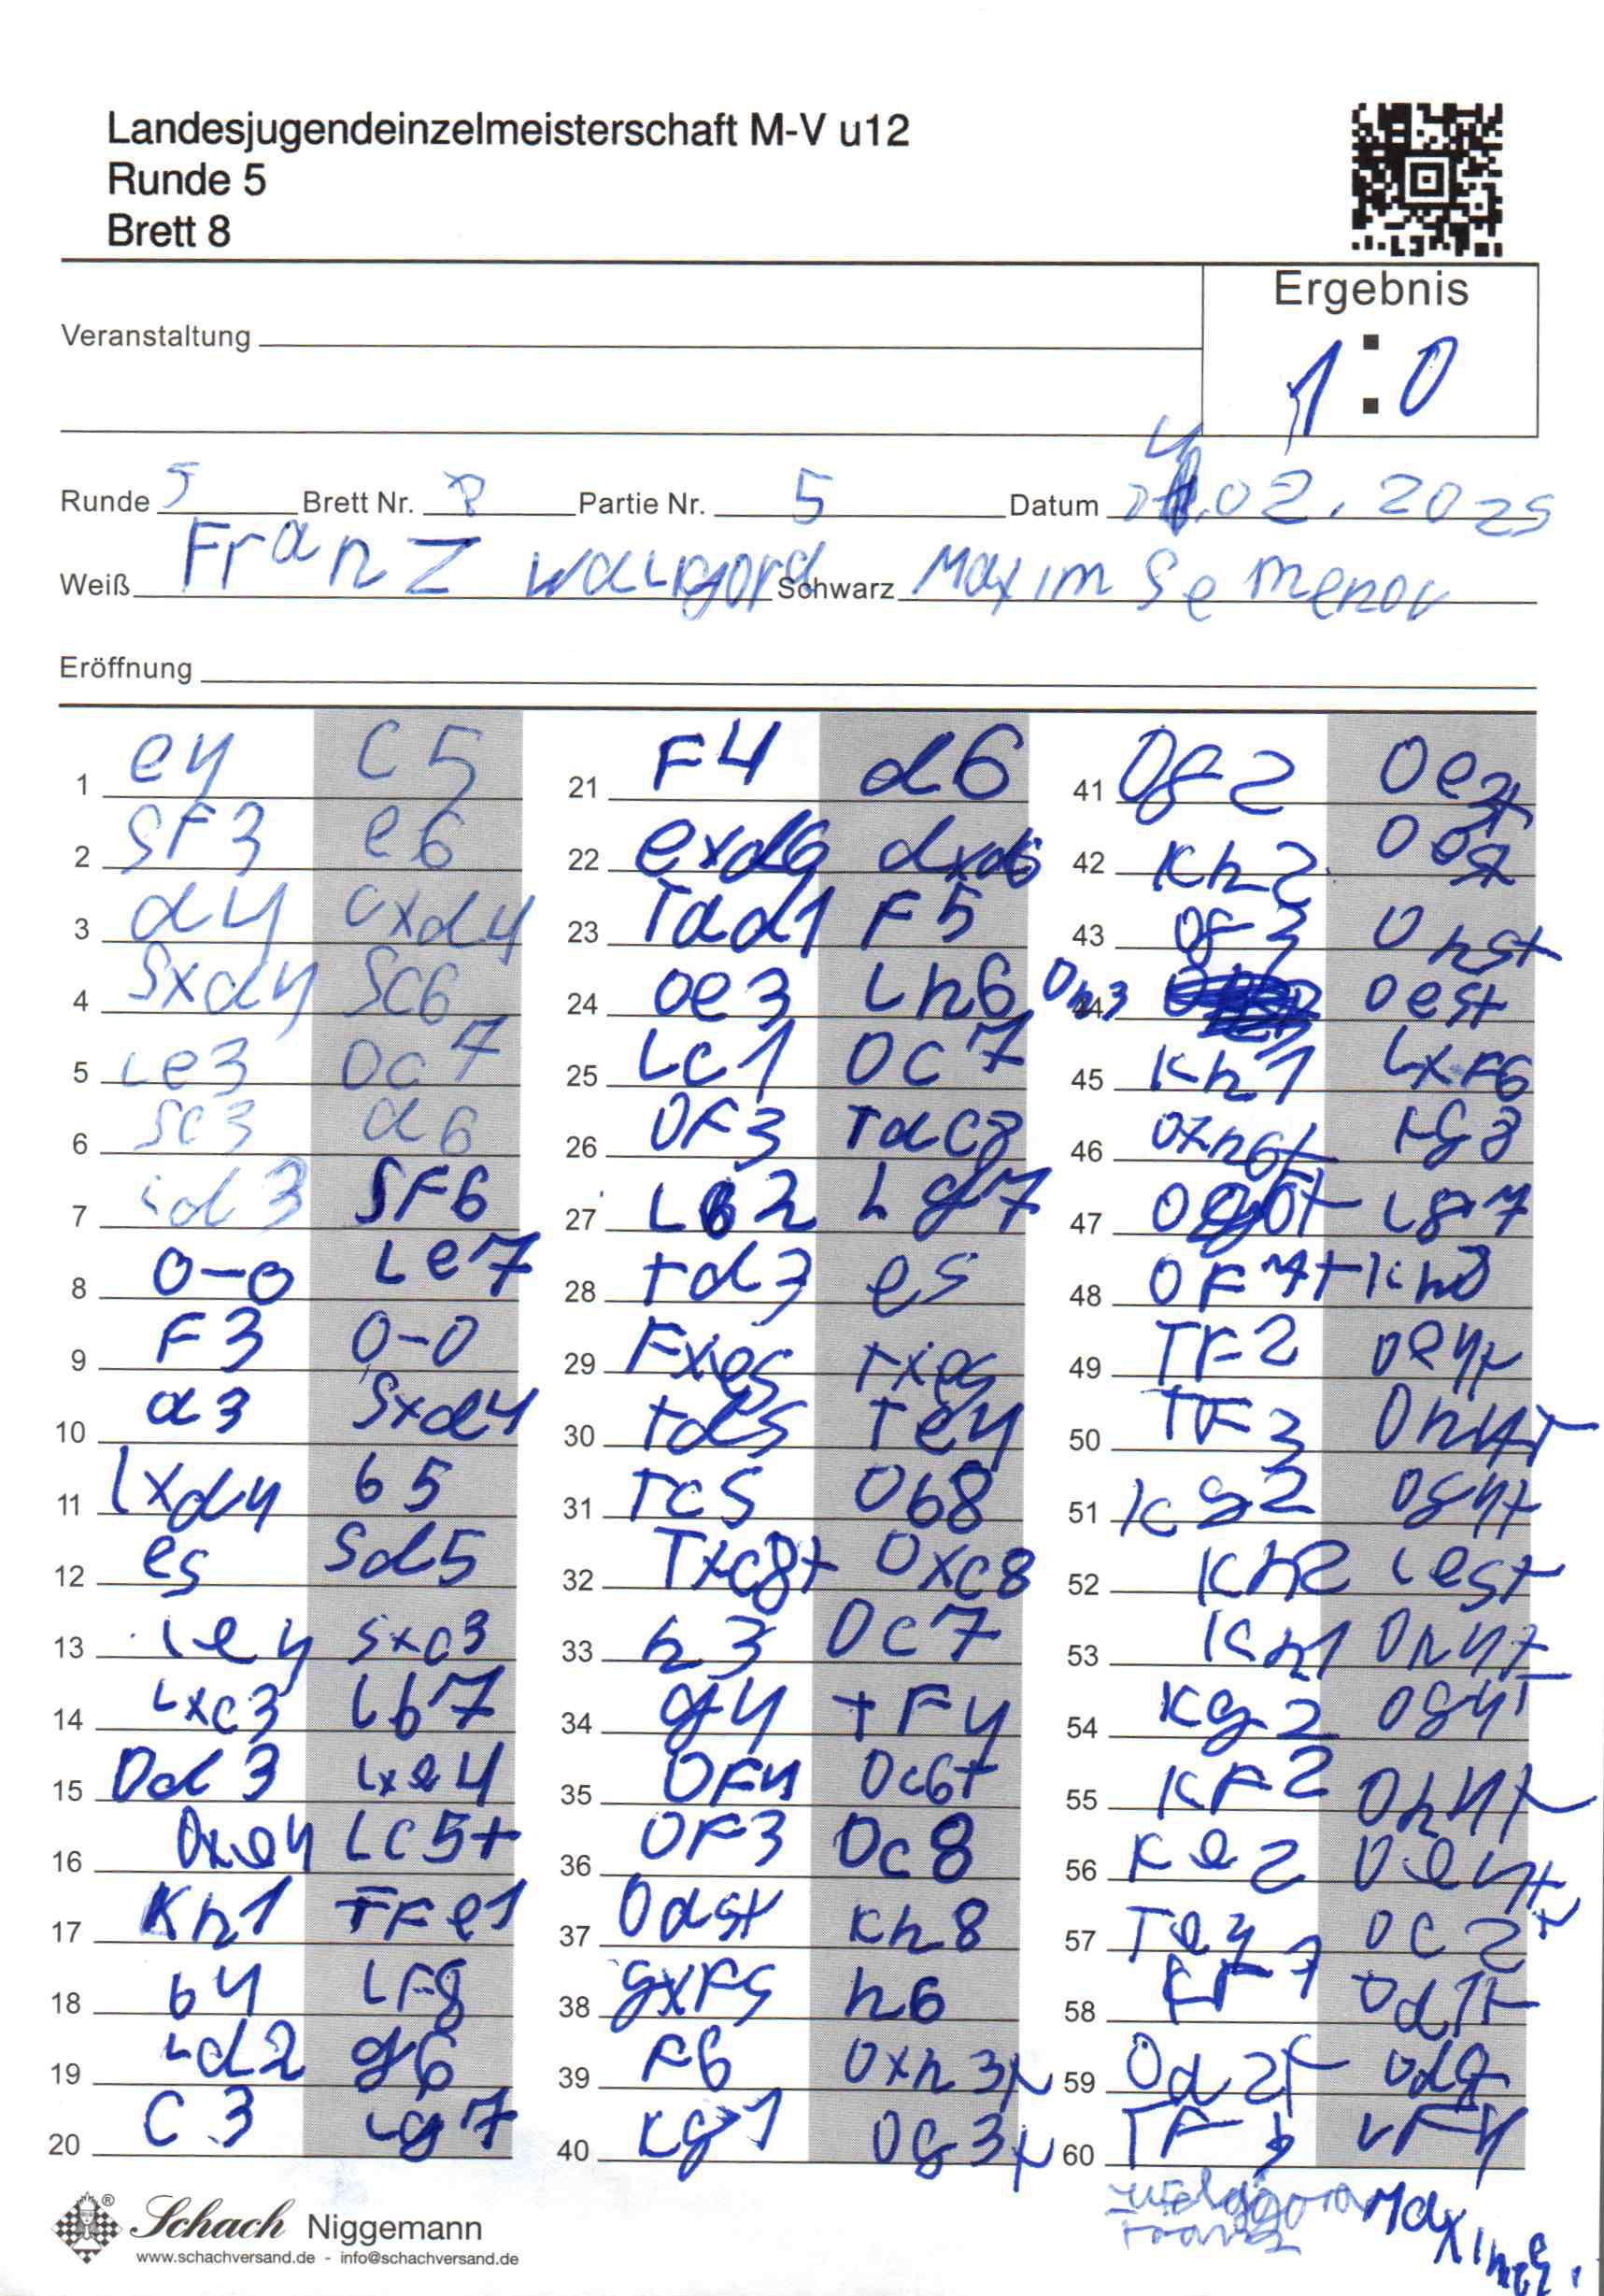 Landesjugendeinzelmeisterschaft M-V u12
Runde 5
Brett 8
Ergebnis
1:0
Veranstaltung
Runde 5 Brett Nr. 8 Partie Nr. 5 Datum .02.2025
Weiß Franz Schwarz Maxim Semenov
Eröffnung
1 e4 c5
2 SF3 e6
3 d4 cxd4
4 Sxd4 Sc6
5 Le3 Dc7
6 Sc3 a6
7 Ld3 SF6
8 0-0 Le7
9 F3 0-0
10 a3 Sxd4
11 Lxd4 b5
12 e5 Sd5
13 Le4 Sxc3
14 Lxc3 Lb7
15 Dd3 Lxe4
16 Dxe4 Lc5+
17 Kh1 TFe1
18 b4 LF8
19 Ld2 g6
20 C3 Lg7
21 F4 d6
22 exd6 dxd6
23 Tad1 F5
24 De3 Lh6
25 Lc1 Dc7
26 DF3 Tac8
27 Lb2 Lg7
28 Td3 e5
29 Fxe5 Txe5
30 Td5 Te4
31 Tc5 Db8
32 Txc8+ Dxc8
33 h3 Dc7
34 g4 TF4
35 DF4 Dc6+
36 DF3 Dc8
37 Dd5+ Kh8
38 gxF5 h6
39 F6 Dxh3+
40 Kg1 Dg3+
41 DF2
42 Kh2
43 DF3 Dh5+
44 Dh3 De5+
45 Kh1 LxF6
46 Dxh6+ Kg8
47 Dg6+ Lg7
48 DF7+ Kh8
49 TF2 De4+
50 TF3 Dh4+
51 Kg2 Dg4+
52 Kh2 Le5+
53 Kh1 Dh4+
54 Kg2 Dg4+
55 KF2 Dh4+
56 Ke2 De4+
57 Dc2+
58 Dd1+
59 Dd2+
60 LF4
Schach Niggemann
www.schachversand.de - info@schachversand.de